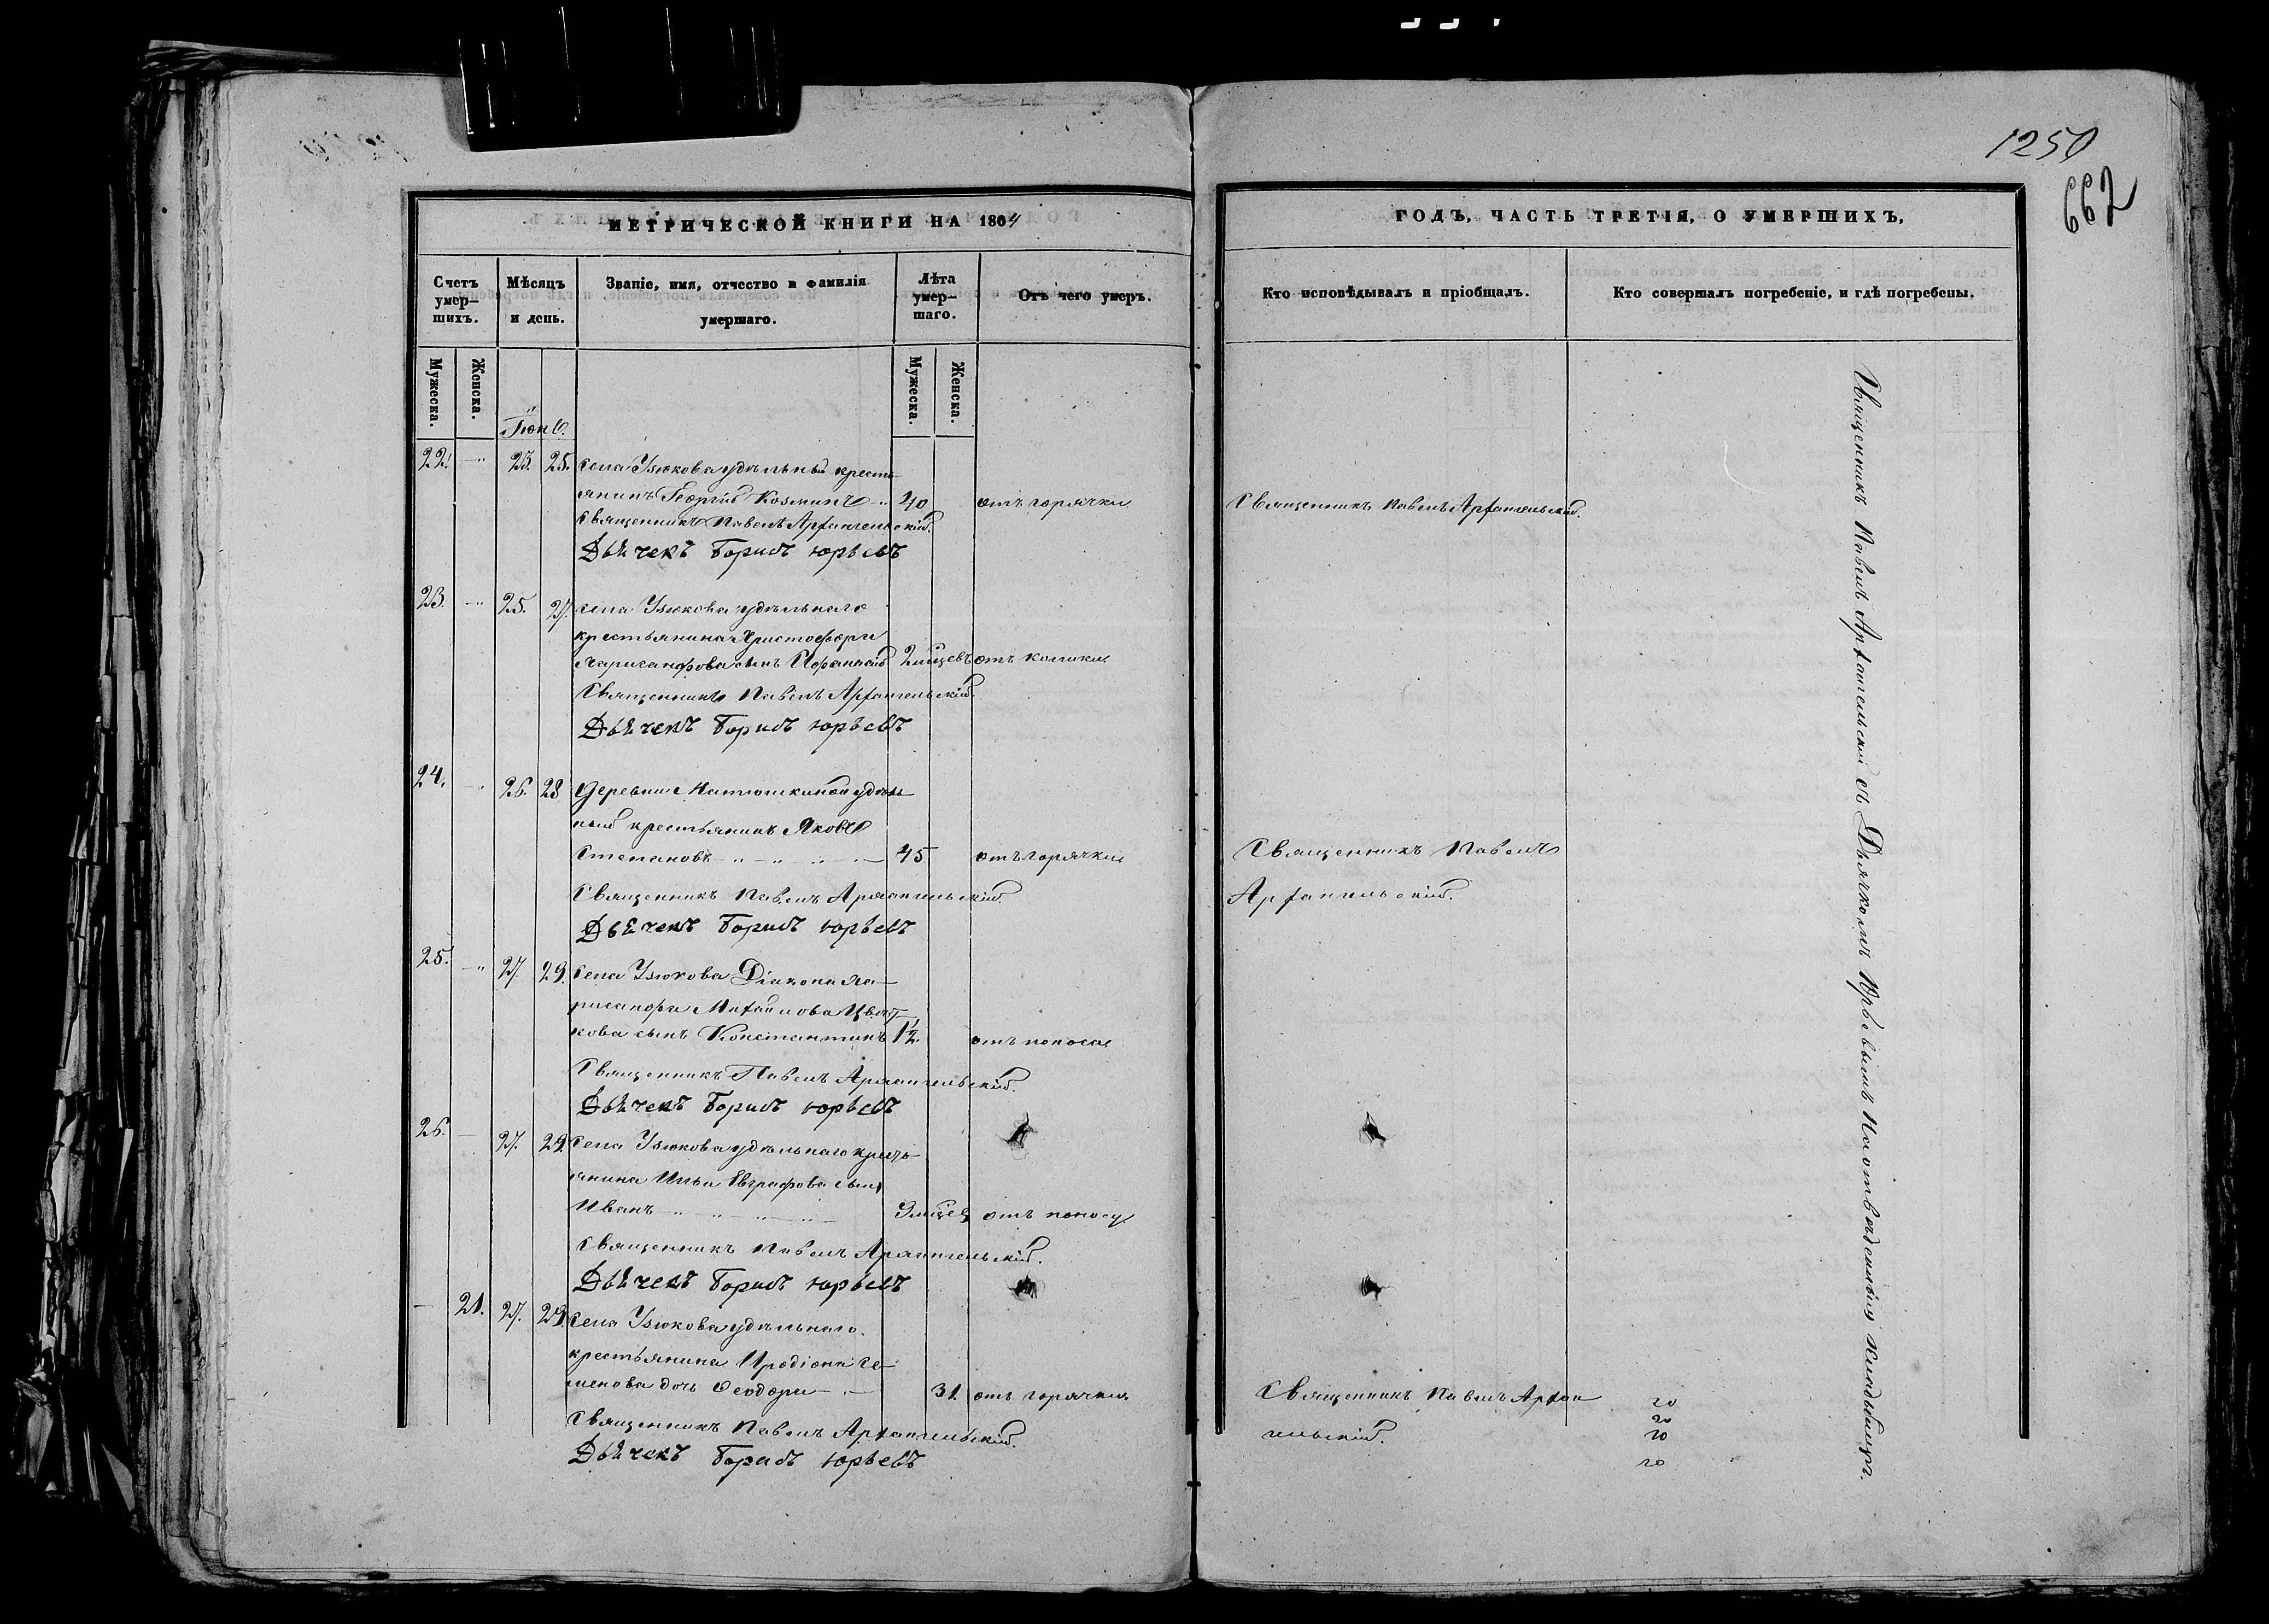 1250
662
МЕТРИЧЕСКОЙ КНИГИ НА 1804
ГОДЪ, ЧАСТЬ ТРЕТІЯ, О УМЕРШИХЪ,
Счетъ умер–шихъ.
Мѣсяцъ и день.
Званіе, имя, отчество и фамилія умершаго.
Лѣта умер–шаго.
Отъ чего умеръ.
Кто исповѣдывалъ и пріобщалъ.
Кто совершалъ погребеніе, и гдѣ погребены.
Мужеска.
Женска.
Мужеска.
Женска.
22. 23. 25. Села Узюкова удѣльный кресть-
янинъ Георгій Козминъ 40 отъ горячки
Священникъ Павелъ Архангельскій.
Священникъ Павелъ Архангельскій.
Дьячекъ Борисъ Юрьевъ
23. 25. 27. Села Узюкова удѣльнаго
крестьянина Христофора
сынъ 2 отъ колики
Священникъ Павелъ Архангельскій
Дьячекъ Борисъ Юрьевъ
24. 26. 28 Деревни Матюшкиной удѣль
ный крестьянинъ Яковъ
Степановъ 45 отъ горячки
Священникъ Павелъ
Архангельскій.
Священникъ Павелъ Архангельскій.
Дьячекъ Борисъ Юрьевъ
25. 27. 29. Села Узюкова Діакона
Цвѣт-
кова сынъ Константинъ 1½. отъ поноса
Священникъ Павелъ Архангельскій.
Дьячекъ Борисъ Юрьевъ
26. 27. 29 Села Узюкова удѣльнаго
янина Ильи Евграфова сынъ
Иванъ отъ поносу
Священникъ Павелъ Архангельскій.
Дьячекъ Борисъ Юрьевъ
21. 27. 29. Села Узюкова удѣльнаго
крестьянина Иродіона Се-
менова дочь Ѳеодора 31. отъ горячки
Священникъ Павелъ Архан
гельскій.
Священникъ Павелъ Архангельскій.
Дьячекъ Борисъ Юрьевъ
Священникъ Павелъ Архангельскій съ Дьячкомъ Юрьевымъ На отведенномъ кладбищѣ.
20
20
20
20